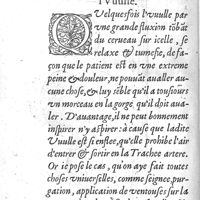 l'Vuulle.
QVelquesfois l'vuulle par
vne grande fluxiõn tõbãt
du cerueau sur icelle, se
relaxe & tumefie, de fa-
çon que le patient est en vne extreme
peine & douleur, ne pouuãt aualler au-
cune chose, & luy sẽble qu'il a tousiours
vn morceau en la gorge, qu'il doit aual-
ler. D'auantage, il ne peut bonnement
inspirer n'y aspirer: à cause que ladite
Vuulle est si enflee, qu'elle prohibe l'air
d'entrer & sortir en la Trachee artere.
Or ie pose le cas, qu'on aye fait toutes
choses vniuerselles, comme seignee, pur-
gation, application de ventouses sur la